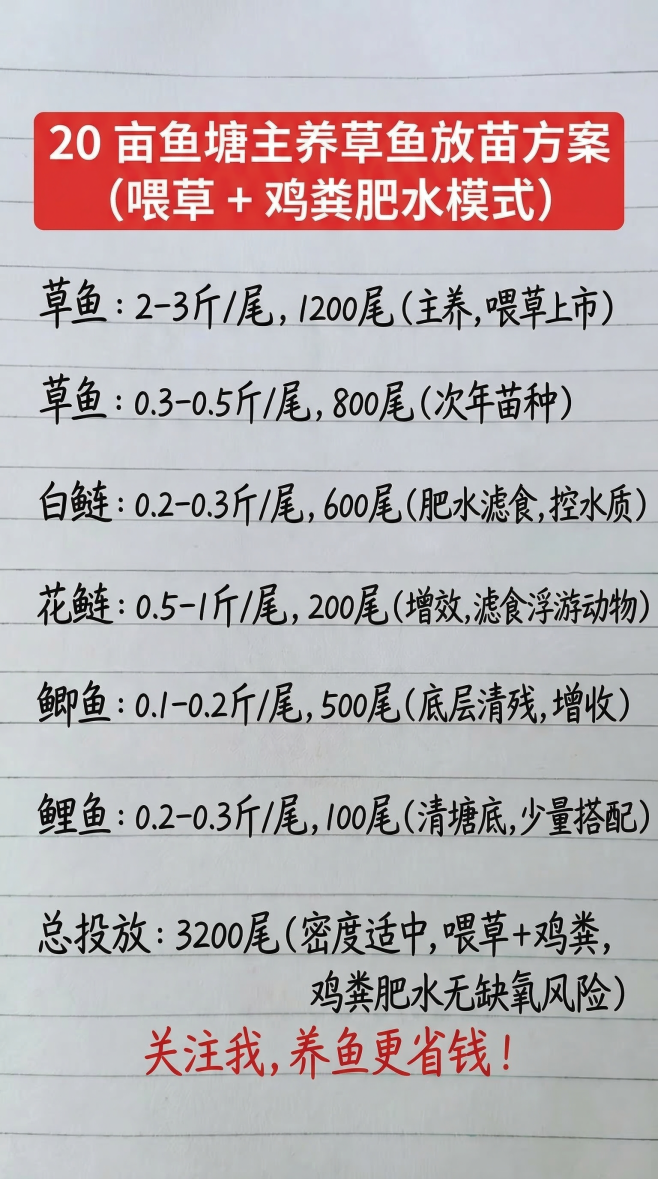 20 亩鱼塘主养草鱼放苗方案
（喂草 + 鸡粪肥水模式）
草鱼：2-3斤/尾，1200尾（主养，喂草上市）
草鱼：0.3-0.5斤/尾，800尾（次年苗种）
白鲢：0.2-0.3斤/尾，600尾（肥水滤食，控水质）
花鲢：0.5-1斤/尾，200尾（增效，滤食浮游动物）
鲫鱼：0.1-0.2斤/尾，500尾（底层清残，增收）
鲤鱼：0.2-0.3斤/尾，100尾（清塘底，少量搭配）
总投放：3200尾（密度适中，喂草+鸡粪，
鸡粪肥水无缺氧风险）
关注我，养鱼更省钱！